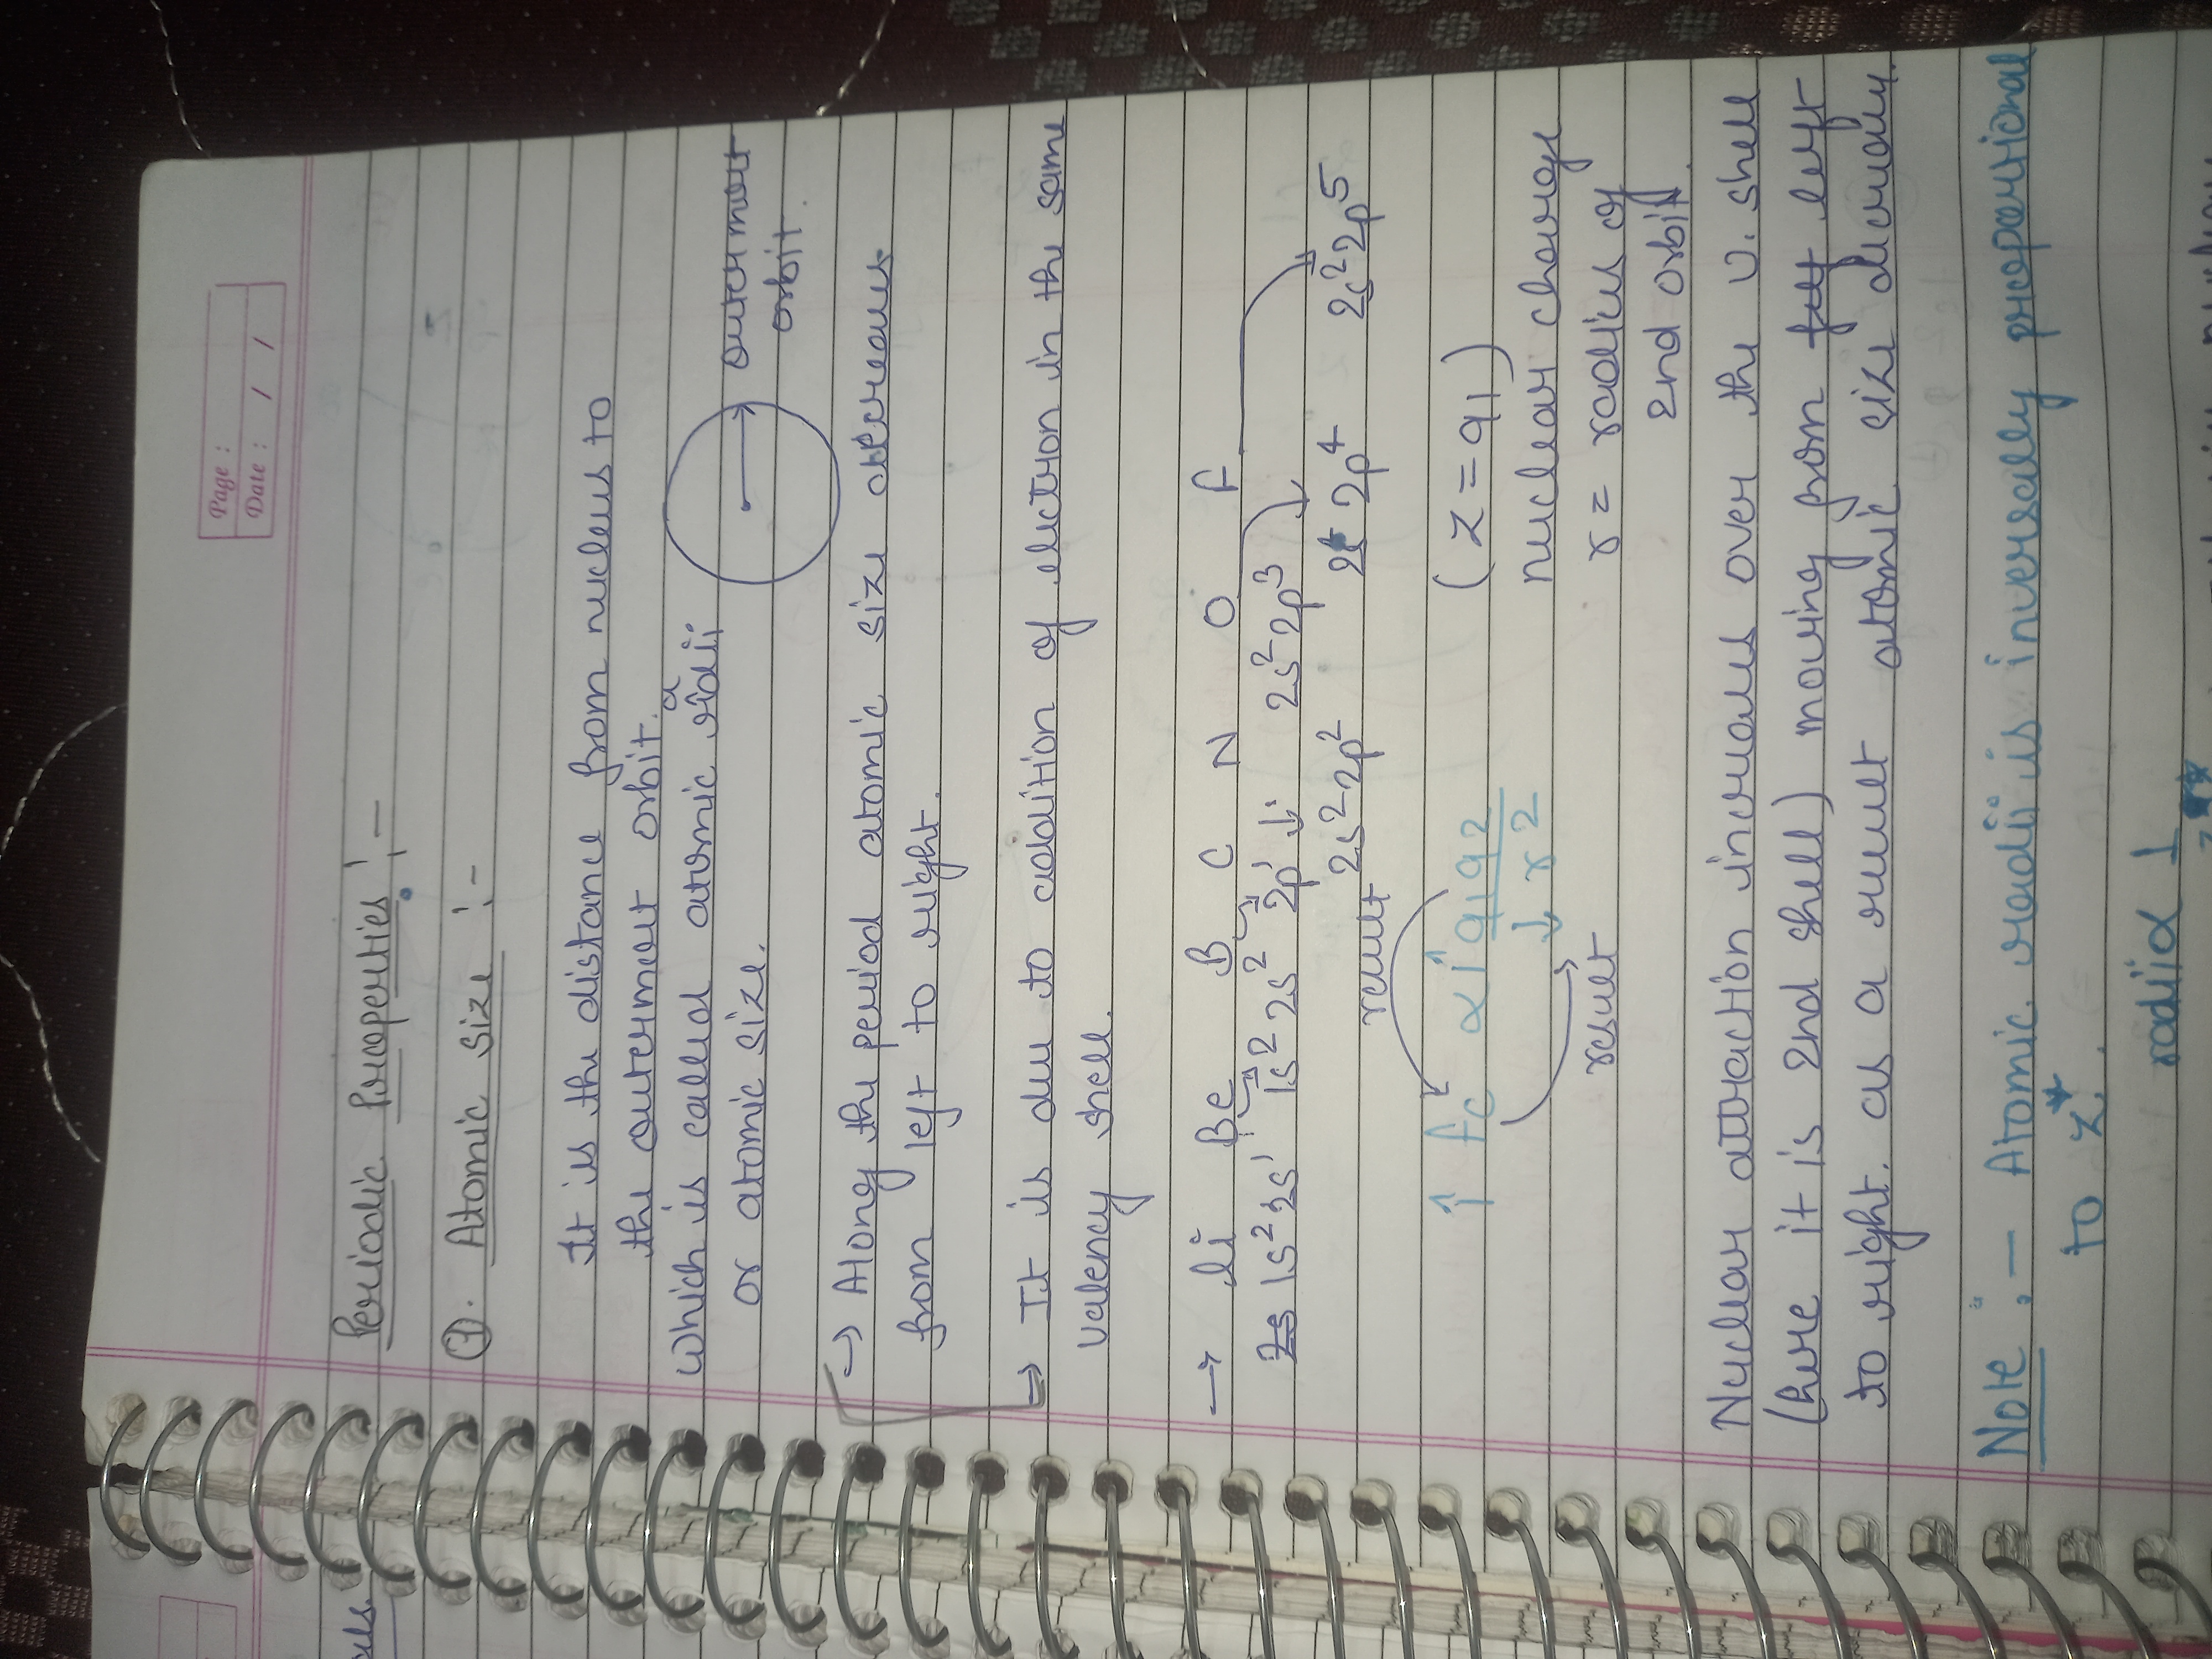 Page :
Date : / /
Periodic Properties :-
(1). Atomic size :-
It is the distance from nucleus to
the outermost orbit.
which is called atomic radii
or atomic size.
outermost
orbit.
→ Along the period atomic size decreases
from left to right.
→ It is due to addition of electron in the same
valency shell.
→ li Be B C N O F
2s 1s² 2s¹ 1s² 2s² 2p¹ 2s² 2p³
2s² 2p² 2s 2p⁴ 2s² 2p⁵
result
↑ fc α ↑ q1q2 (z = q1)
↓ r 2 nuclear charge
result r = radius of
2nd orbit
Nuclear attraction increases over the v. shell
(here it is 2nd shell) moving from left
to right. as a result atomic size decreases.
Note :- Atomic radii is inversally propartional
to z*.
radii α 1